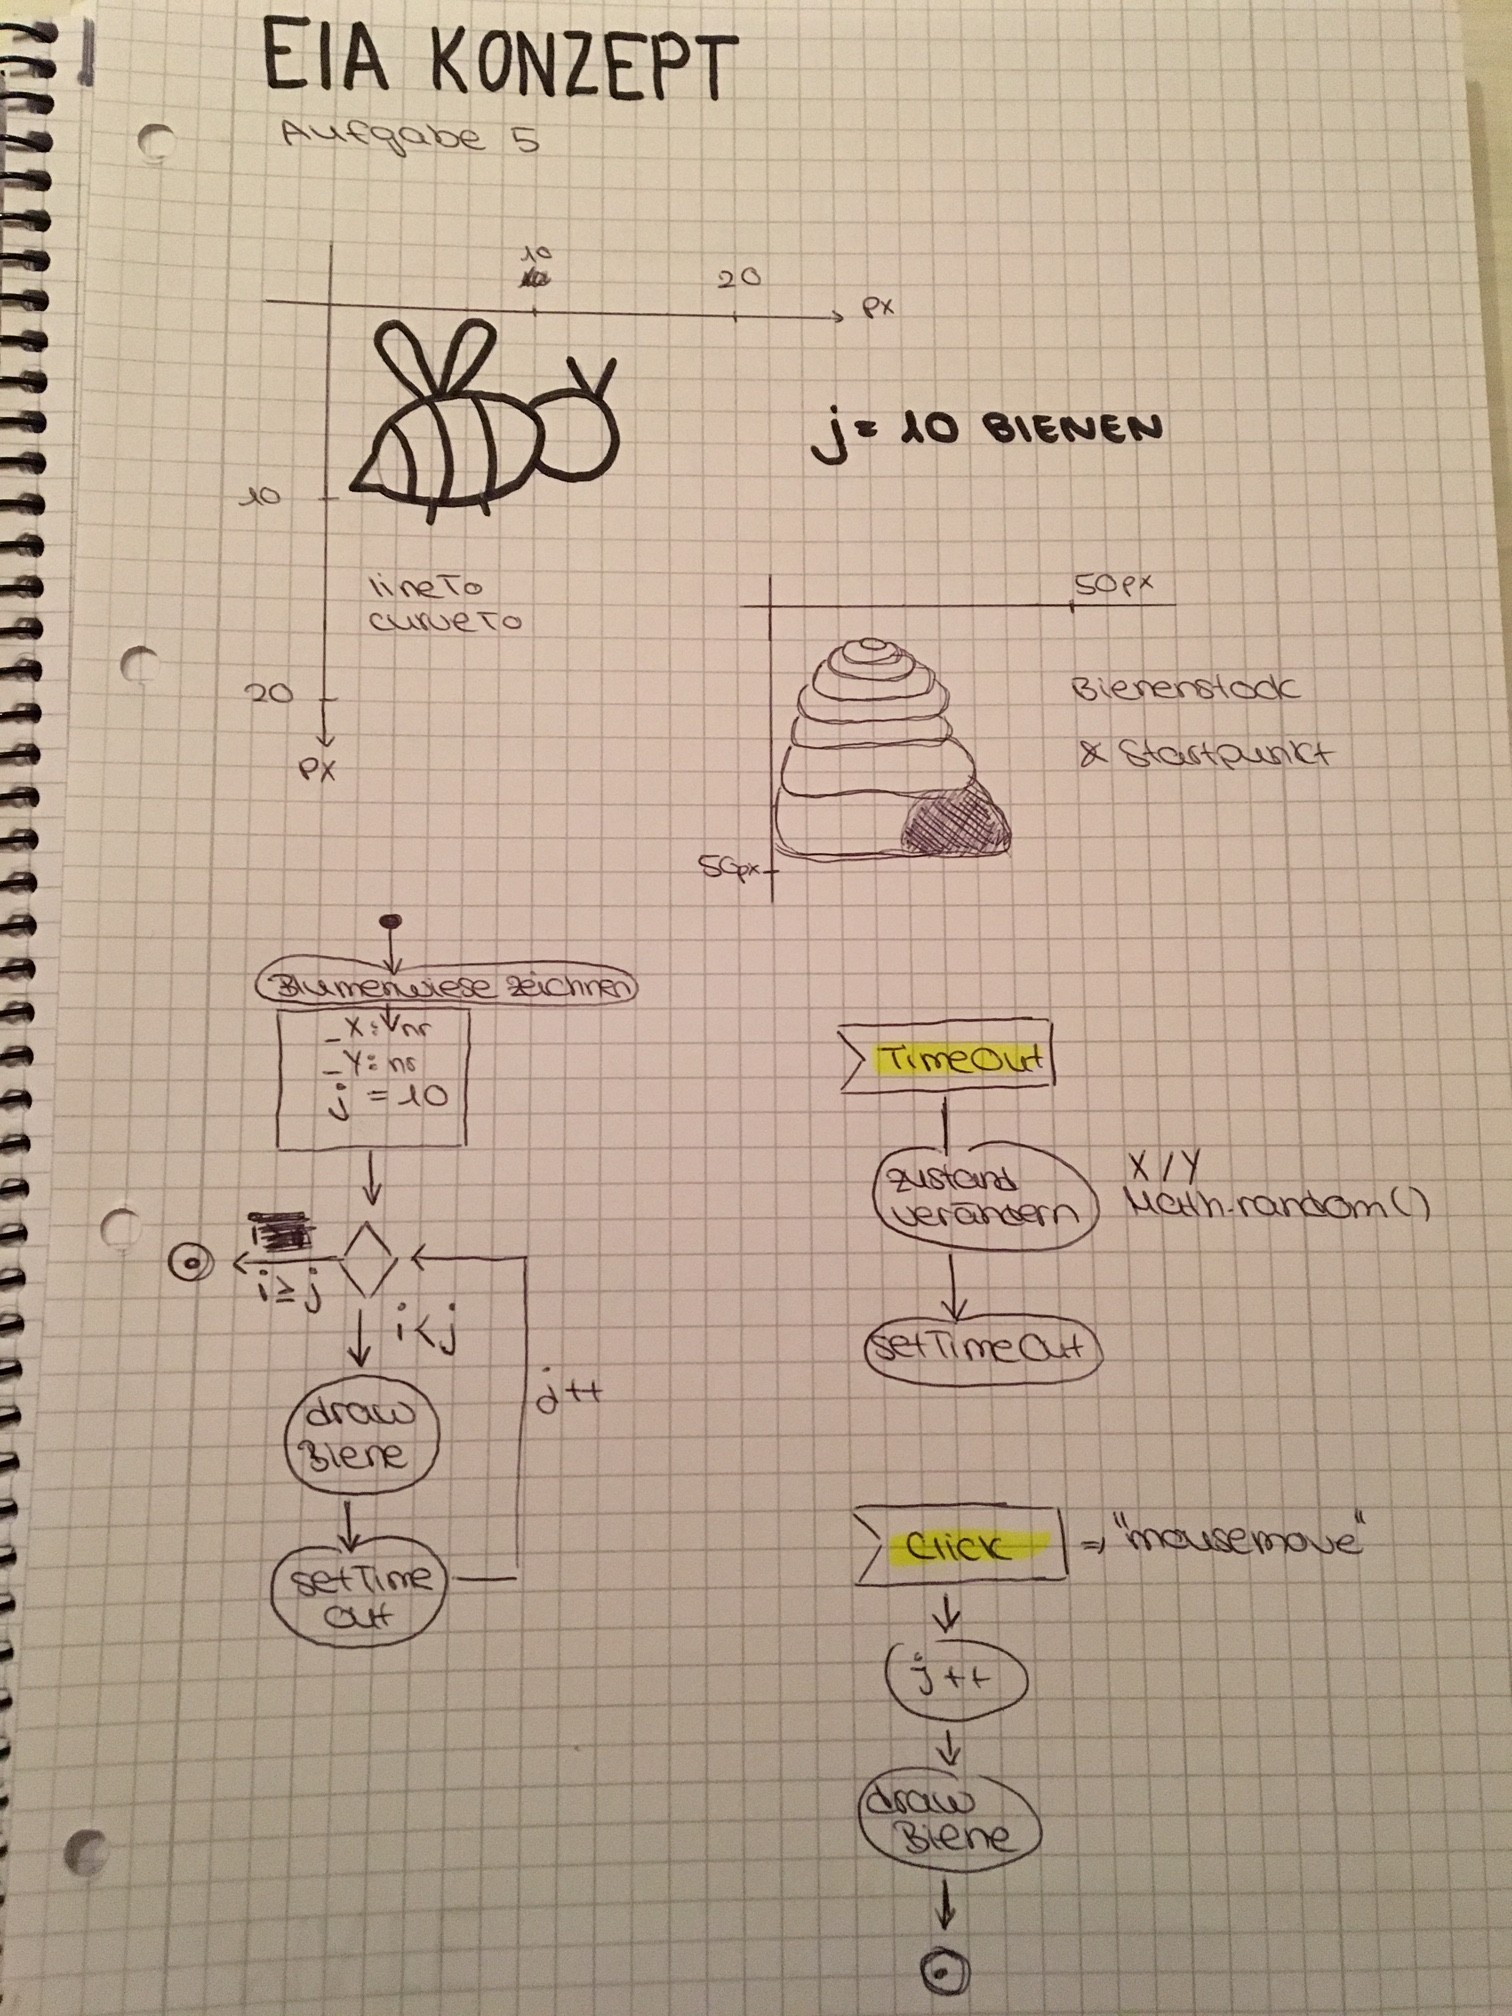 EIA KONZEPT
Aufgabe 5
10
20
px
j = 10 BIENEN
10
lineTo
curveTo
20
px
50px
Bienenstock
& Startpunkt
50px
Blumenwiese zeichnen
_x: nr
_y: nr
j = 10
i ≥ j
i < j
draw
Biene
setTime
Out
j++
TimeOut
zustand
verändern
X / Y
Math.random()
setTimeOut
Click
⇒ "mousemove"
j++
draw
Biene